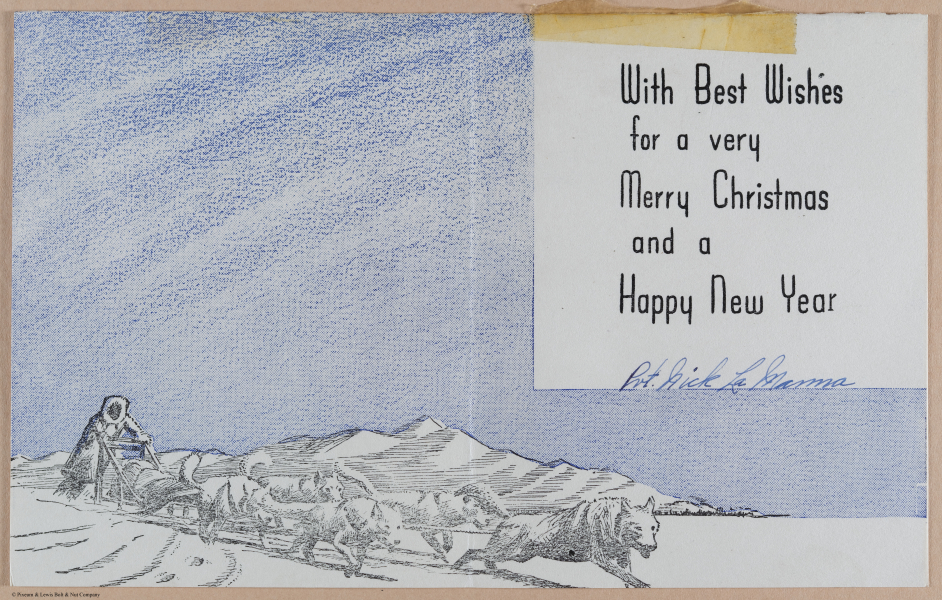 With Best Wishes
for a very
Merry Christmas
and a
Happy New Year
Pvt. Nick La Manna
© Pioearn & Lewis Bolt & Nut Company